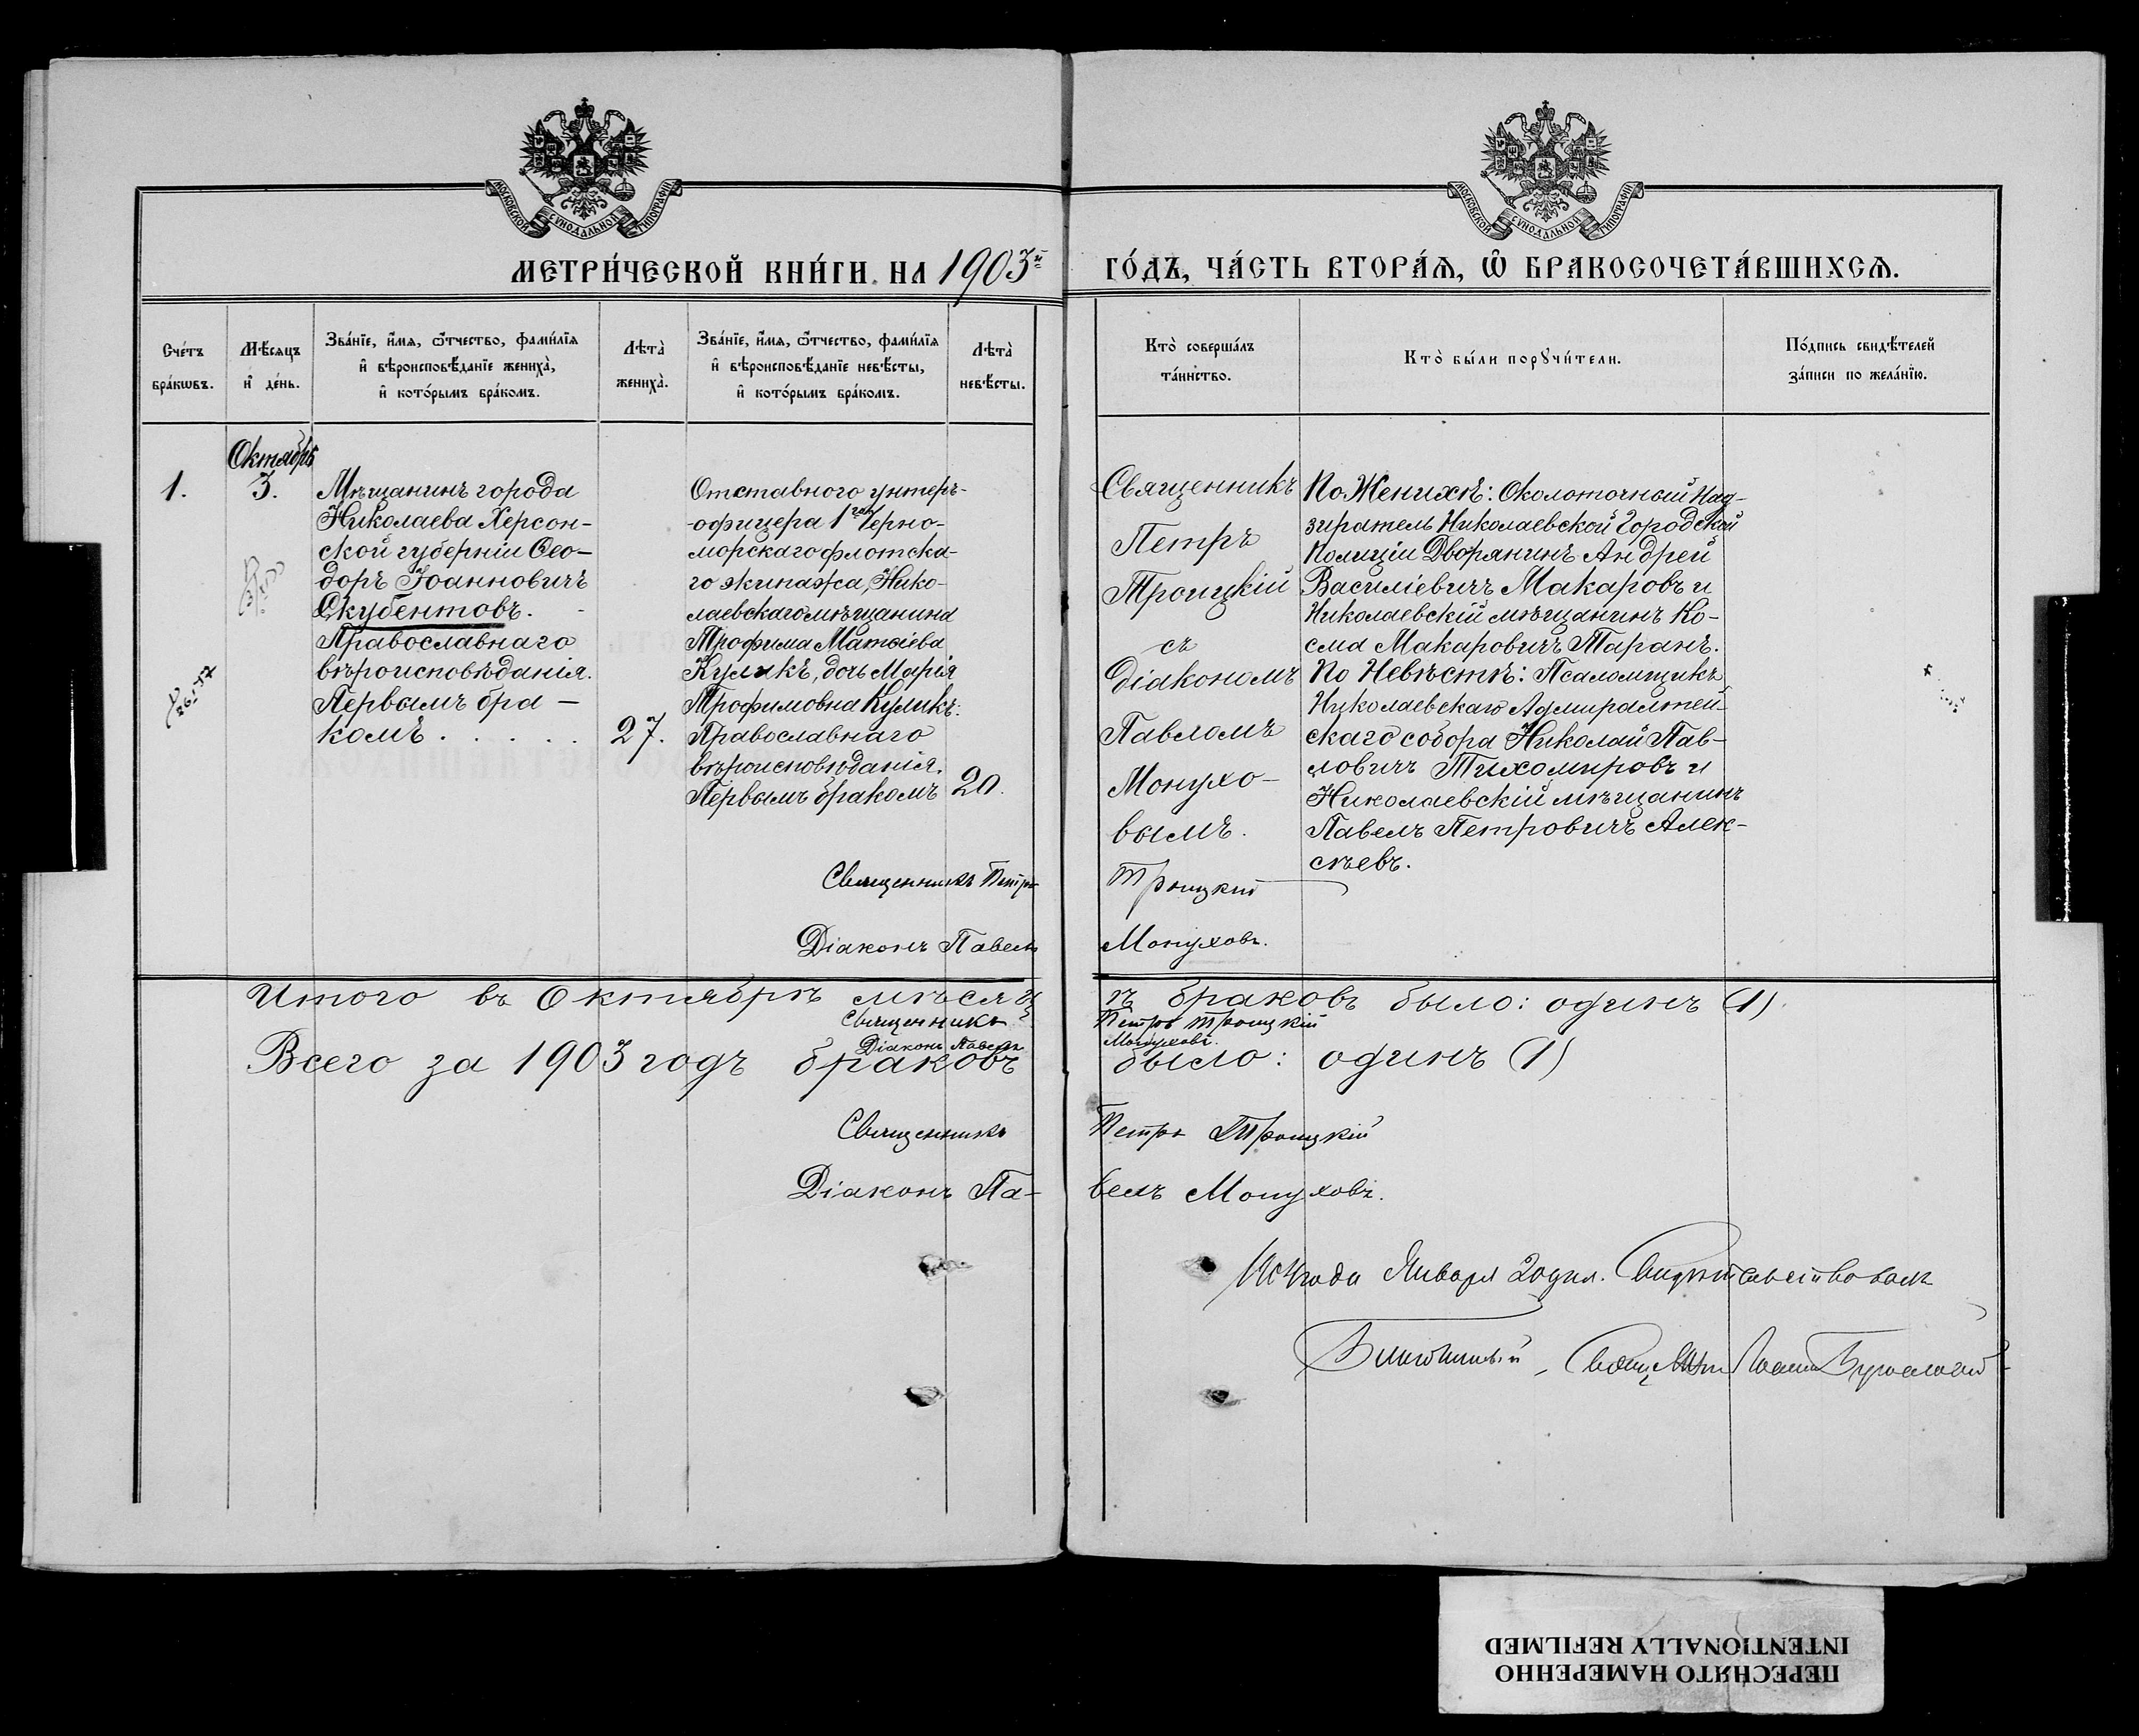 МОСКОВСКОЙ СѴНОДАЛЬНОЙ ТИПОГРАФІИ
МОСКОВСКОЙ СѴНОДАЛЬНОЙ ТИПОГРАФІИ
МЕТРИ́ЧЕСКОЙ КНИ́ГИ НА 1903й ГО́ДЪ, ЧА́СТЬ ВТОРА́Ѧ, Ѽ БРАКОСОЧЕТА́ВШИХСѦ.
Сче́тъ бра́кѡвъ.
Мѣ́сѧцъ и҆ де́нь.
Зва́нїе, и҆́мѧ, ѻ҆́тчество, фами́лїѧ
и҆ вѣроисповѣ́данїе жениха̀,
и҆ кото́рымъ бра́комъ.
Лѣта̀ жениха̀.
Зва́нїе, и҆́мѧ, ѻ҆́тчество, фами́лїѧ
и҆ вѣроисповѣ́данїе невѣ́сты,
и҆ кото́рымъ бра́комъ.
Лѣта̀ невѣ́сты.
Кто̀ соверша́лъ та́инство.
Кто̀ бы́ли порꙋчи́тели.
По́дпись свидѣ́телей за́писи по жела́нїю.
1.
Октябрь
3.
Мѣщанинъ города
Николаева Херсон-
ской губерніи Ѳео-
доръ Іоанновичъ
Скубентовъ.
Православнаго
вѣроисповѣданія.
Первымъ бра-
комъ . . . . .
27.
Отставного унтеръ-
-офицера 1го Черно-
морскаго флотска-
го экипажа, Нико-
лаевскаго мѣщанина
Трофима Матѳіева
Куликъ, дочь Марія
Трофимовна Куликъ.
Православнаго
вѣроисповѣданія.
Первымъ бракомъ
20.
Священникъ
Петръ
Троицкій
съ
діакономъ
Павломъ
Монухо-
вымъ.
По Женихѣ: Околоточный Над-
зиратель Николаевской Городской
Полиціи Дворянинъ Андрей
Василіевичъ Макаровъ и
Николаевскій мѣщанинъ Ко-
сма Макаровичъ Таранъ.
По Невѣстѣ: Псаломщикъ
Николаевскаго Адмиралтей-
скаго собора Николай Пав-
ловичъ Тихомировъ и
Николаевскій мѣщанинъ
Павелъ Петровичъ Алек-
сѣевъ.
Священникъ Петръ Троицкій
Діаконъ Павелъ Монуховъ.
Итого въ Октябрѣ мѣсяцѣ браковъ было: одинъ (1).
Священникъ Петръ Троицкій
Діаконъ Павелъ Монуховъ.
Всего за 1903 годъ браковъ было: одинъ (1)
Священникъ Петръ Троицкій
Діаконъ Павелъ Монуховъ.
1904 года Января 20 дня. Свидѣтельствовалъ
Благочинный, Священникъ Іоаннъ
ПЕРЕСНЯТО НАМЕРЕННО
INTENTIONALLY REFILMED